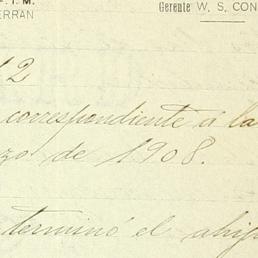 P. I. M.
ERRAN
Gerente W, S, CON
12
correspondiente á la
zo de 1908.
terminó el